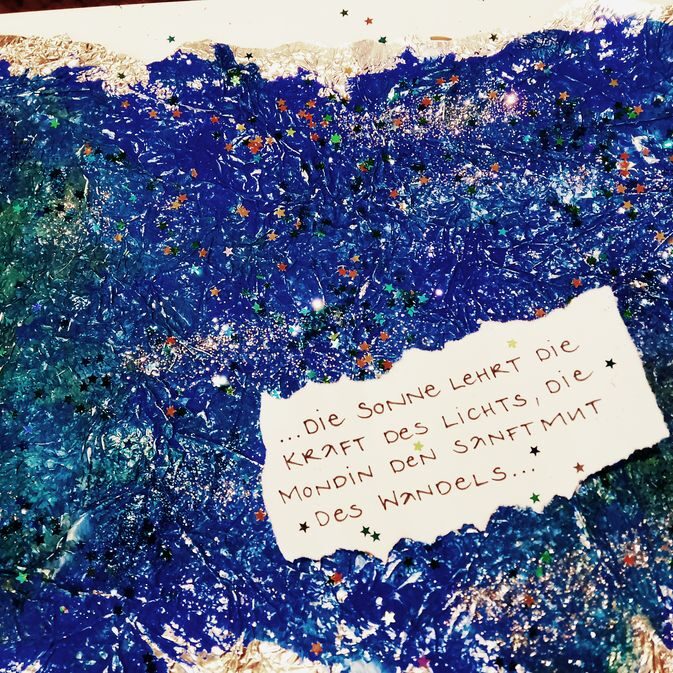 ...DIE SONNE LEHRT DIE
KRAFT DES LICHTS, DIE
MONDIN DEN SANFTMUT
DES WANDELS...